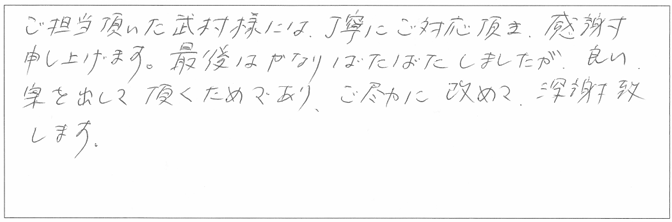 ご担当頂いた武村様には、丁寧にご対応頂き、感謝
申し上げます。最後はかなりばたばたしましたが、良い
案を出して頂くためであり、ご尽力に改めて、深謝致
します。